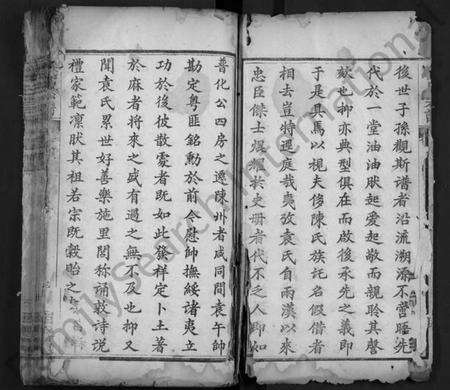 後世子孫觀斯譜者沿流溯源不啻晤先
代於一堂油油肰起愛起敬而親聆其謦
欬也抑亦典型俱在而啟後承先之義即
于是具焉以視夫侈陳氏族託名假借者
相去豈特逕庭哉夷攷袁氏自兩漢以來
忠臣傑士焜耀於史册者代不乏人即如
普化公四房之遷陳州者咸同間袁午帥
勘定粵匪銘勳於前令慰帥撫綏諸夷立
功於後彼散處者既如此發祥定卜土著
於麻者將來之盛有過之無不及也抑又
聞袁氏累世好善樂施里閭稱誦敦詩說
禮家範凛肰其祖若宗既穀貽之
FamilySearch International